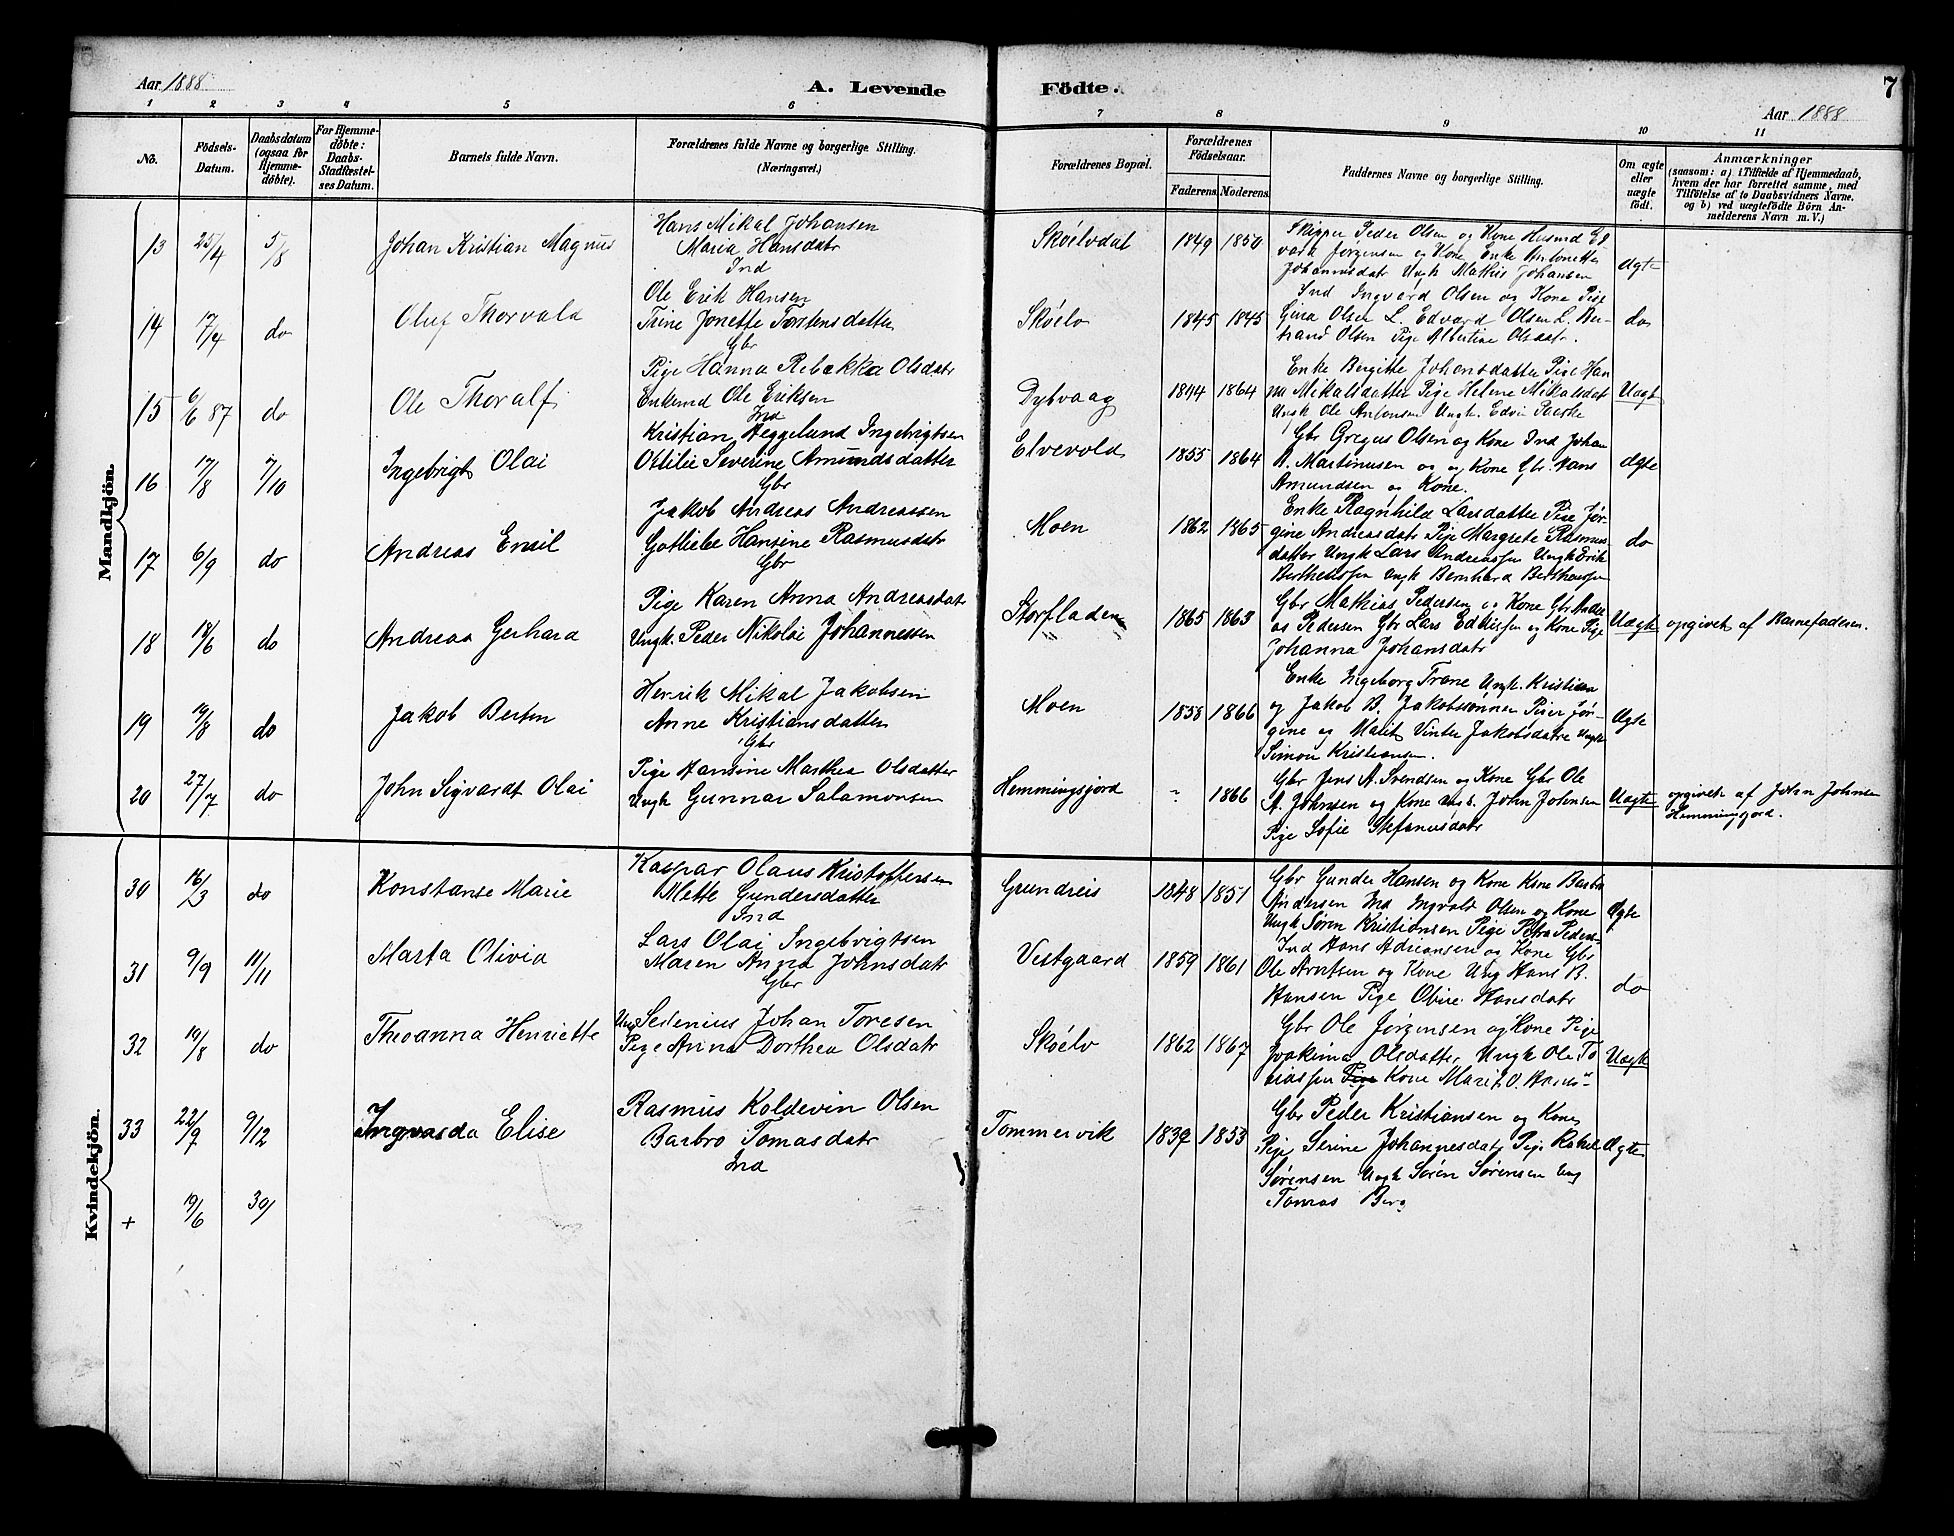 Aar 1888
A. Levende Födte.
7
Aar 1888
1 2 3 4 5 6 7 8 9 10 11
No.
Födsels-
Datum.
Daabsdatum
(ogsaa for
Hjemme-
döbte).
For Hjemme-
döbte:
Daabs-
Stadfæstel-
ses Datum.
Barnets fulde Navn.
Forældrenes fulde Navne og borgerlige Stilling.
(Næringsvei.)
Forældrenes Bopæl.
Forældrenes
Födselsaar.
Faderens. Moderens.
Faddernes Navne og borgerlige Stilling.
Om ægte
eller
uægte
födt.
Anmærkninger
(saasom: a) i Tilfælde af Hjemmedaab,
hvem der har forrettet samme, med
Tilföielse af to Daabsvidners Navne.
og b) ved uægtefödte Börn An-
melderens Navn m. V.)
Mandkjön.
13 25/4 5/8 Johan Kristian Magnus
Hans Mikal Johansen
Maria Hansdatr
Ind
Skøelvdal 1849 1850
Skipper Peder Olsen og Kone Husmd Ed
vard Jørgensen og Kone Enke Antonette
Johannesdatr Ungk Mathis Johansen
Ægte
14 17/4 do Oluf Thorvald
Ole Erik Hansen
Trine Jonette Torstensdatter
Gbr
Skøelv 1845 1845
Ind Ingvard Olsen og Kone Pige
Gina Olsen L. Edvard Olsen L. Ber-
trand Olsen Pige Albertine Olsdatr.
do
15 6/6 87 do Ole Thoralf
Pige Hanna Rebekka Olsdatr
Enkemd Ole Eriksen
Ind
Dybvaag 1844 1864
Enke Bergitte Johansdatter Pige Han
na Mikalsdatter Pige Helene Mikalsdat
Ungk Ole Antonsen Ungk. Edvin
Uægt
16 17/8 7/10 Ingebrigt Olai
Kristian Heggelund Ingebrigtsen
Ottilie Severine Amundsdatter
Gbr
Elvevold 1855 1864
Gbr Gregus Olsen og Kone Ind Johan
A. Martinusen og Kone Gbr Hans
Amundsen og Kone.
Ægte
17 6/9 do Andreas Emil
Jakob Andreas Andreassen
Gotliebe Hansine Rasmusdatr
Gbr
Moen 1862 1865
Enke Ragnhild Larsdatter Pige Jør-
gine Andreasdatr Pige Margrete Rasmus-
datter Ungk Lars Andreassen Ungk Erik
Bertheussen Ungk Bernhard Bertheussen
do
18 18/6 do Andreas Gerhard
Pige Karen Anna Andreasdatr
Ungk. Peder Nikolai Johannessen
Storfladen 1865 1863
Gbr Mathias Pedersen og Kone Gbr Andre
as Pedersen Gbr Lars og Kone Pige
Johanna Johansdatr
Uægte opgivet af Barnefaderen.
19 19/8 do Jakob Berten
Henrik Mikal Jakobsen
Anne Kristiansdatter
Gbr
Moen 1858 1866
Enke Ingeborg Trane Ungk. Kristian
og Jakob B. Jakobsønner Piger Jør-
gine og Marit Vinter Jakobsdatre Ungk
Simon Kristiansen.
Ægte
20 27/7 do John Sigvardt Olai
Pige Hansine Marthea Olsdatter
Ungk Gunnar Salamonsen
Hemmingsjord " 1866
Gbr Jens A. Svendsen og Kone Gbr Ole
A. Johnsen og Kone Ungk. John Johnsen
Pige Sofie Stefanusdatr
Uægte opgivet af John Johnsen
Hemmingsjord.
Kvindekjön.
30 16/3 do Konstanse Marie
Kaspar Olaus Kristoffersen
Mette Gundersdatter
Ind
Grundreis 1848 1851
Gbr Gunder Hansen og Kone Kone Barbro
Andersen Ind Ingvald Olsen og Kone
Ungk Søren Kristiansen Pige Petra Peders-
Ægte
31 9/9 11/11 Marta Olivia
Lars Olai Ingebrigtsen
Maren Anna Johnsdatr
Gbr
Vestgaard 1859 1861
Ind Hans Adriansen og Kone Gbr
Ole Arntsen og Kone Ung Hans B.
Hansen Pige Oline Hansdatr
do
32 19/8 do Theoanna Henriette
Ung Sedenius Johan Toresen
Pige Anna Dorthea Olsdatr
Skøelv 1862 1867
Gbr Ole Jørgensen og Kone Pige
Joakima Olsdatter Ungk Ole To
biassen Pige Kone Marit O.
Uægte
33 22/9 9/12 Ingvarda Elise
Rasmus Koldevin Olsen
Barbro Tomasdatr
Ind
Tommervik 1839 1853
Gbr Peder Kristiansen og Kone
Pige Serine Johannesdatr Pige Rakel
Sørensen Ungk Søren Sørensen Ung
Tomas Berg
Ægte
+ 19/6 30/